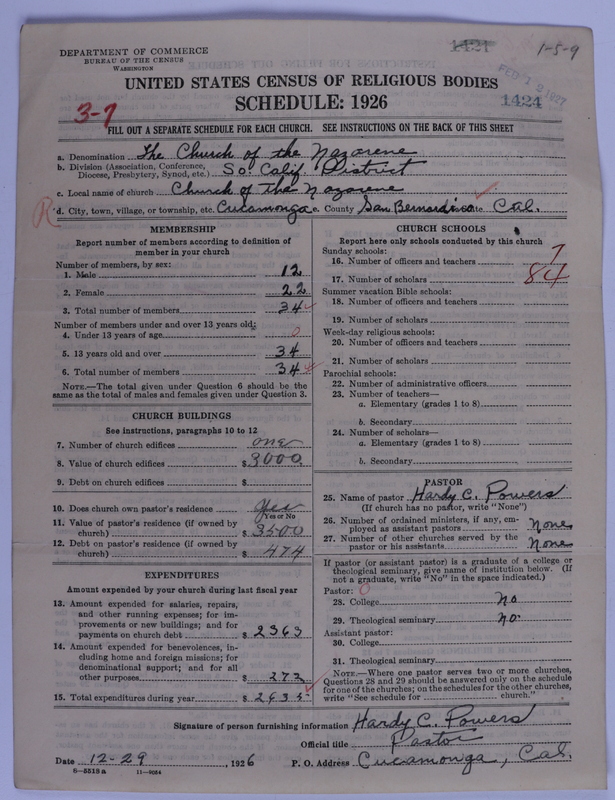 DEPARTMENT OF COMMERCE
BUREAU OF THE CENSUS
WASHINGTON
1421
1-5-9
FEB 12 1927
1424
UNITED STATES CENSUS OF RELIGIOUS BODIES
SCHEDULE: 1926
3-7
FILL OUT A SEPARATE SCHEDULE FOR EACH CHURCH. SEE INSTRUCTIONS ON THE BACK OF THIS SHEET
a. Denomination The Church of the Nazarene
b. Division (Association, Conference, Diocese, Presbytery, Synod, etc.) So. Calif. District
c. Local name of church Church of the Nazarene
R
d. City, town, village, or township, etc. Cucamonga e. County San Bernardino State Cal.
MEMBERSHIP
Report number of members according to definition of
member in your church
Number of members, by sex:
1. Male 12
2. Female 22
3. Total number of members 34
Number of members under and over 13 years old:
4. Under 13 years of age 0
5. 13 years old and over 34
6. Total number of members 34
NOTE.—The total given under Question 6 should be the
same as the total of males and females given under Question 3.
CHURCH BUILDINGS
See instructions, paragraphs 10 to 12
7. Number of church edifices one
8. Value of church edifices $ 3000
9. Debt on church edifices $
10. Does church own pastor's residence Yes
Yes or No
11. Value of pastor's residence (if owned by
church) $ 3500
12. Debt on pastor's residence (if owned by
church) $ 474
EXPENDITURES
Amount expended by your church during last fiscal year
13. Amount expended for salaries, repairs,
and other running expenses; for im-
provements or new buildings; and for
payments on church debt $ 2363
14. Amount expended for benevolences, in-
cluding home and foreign missions; for
denominational support; and for all
other purposes $ 272
15. Total expenditures during year $ 2635
CHURCH SCHOOLS
Report here only schools conducted by this church
Sunday schools:
16. Number of officers and teachers 7
17. Number of scholars 84
Summer vacation Bible schools:
18. Number of officers and teachers
19. Number of scholars
Week-day religious schools:
20. Number of officers and teachers
21. Number of scholars
Parochial schools:
22. Number of administrative officers
23. Number of teachers—
a. Elementary (grades 1 to 8)
b. Secondary
24. Number of scholars—
a. Elementary (grades 1 to 8)
b. Secondary
PASTOR
25. Name of pastor Hardy C. Powers
(If church has no pastor, write "None")
26. Number of ordained ministers, if any, em-
ployed as assistant pastors None
27. Number of other churches served by the
pastor or his assistants None
If pastor (or assistant pastor) is a graduate of a college or
theological seminary, give name of institution below. (If
not a graduate, write "No" in the space indicated.)
Pastor: 0
28. College No
29. Theological seminary no.
Assistant pastor:
30. College
31. Theological seminary
NOTE.—Where one pastor serves two or more churches,
Questions 28 and 29 should be answered only on the schedule
for one of the churches; on the schedules for the other churches,
write "See schedule for church."
Signature of person furnishing information Hardy C. Powers
Official title Pastor
Date 12-29, 1926 P. O. Address Cucamonga, Cal.
8-5518a 11-9054